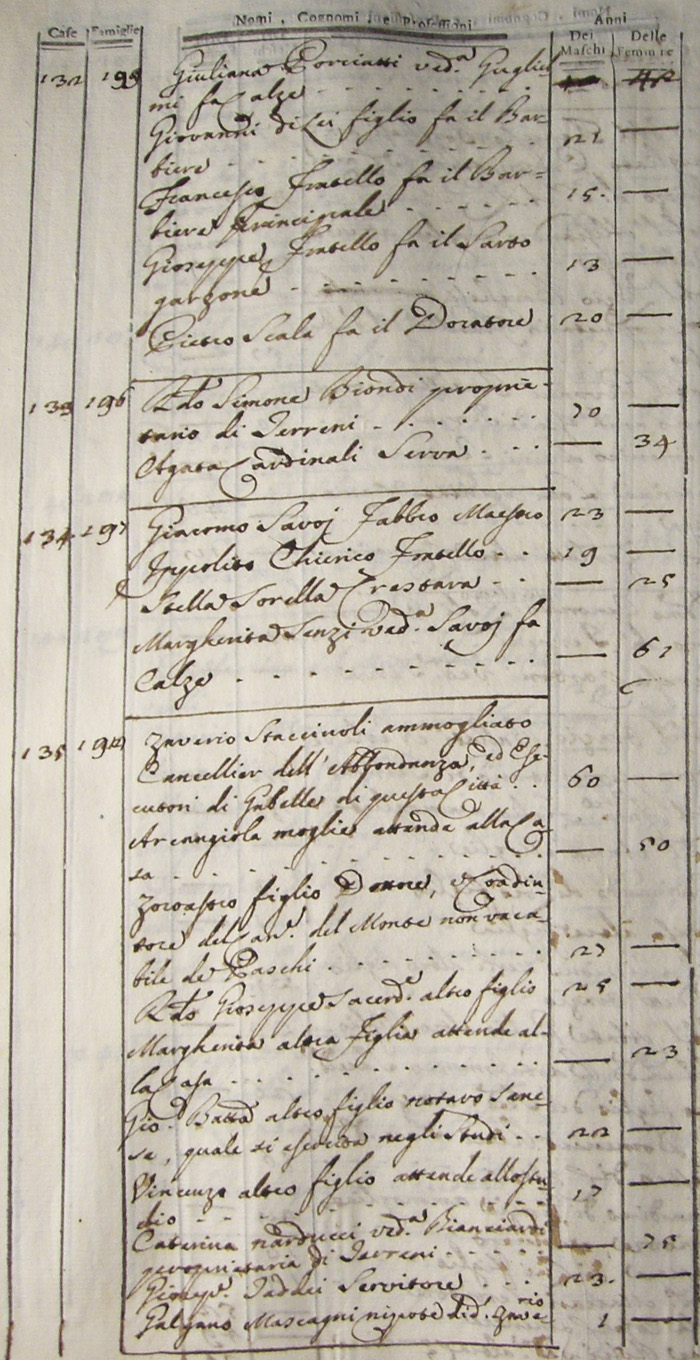 Case Famiglie Nomi, Cognomi, e Professioni Anni
Dei Maschi Delle Femmine
132 195 Giuliana Porciatti ved.ª Gugliel
mi fa Calze - - - - - -
Giovanni di Lei figlio fa il Bar-
biere - - - - - - 21 —
Francesco Fratello fa il Bar-
biere Principale - - - - 15. —
Giuseppe Fratello fa il Sarto
garzone - - - - - - 13 —
Pietro Scala fa il Doratore 20 —
133 196 R.do Simone Biondi proprie-
tario di Terreni - - - - - 70 —
Agata Cardinali Serva - - - — 34
134 197 Giacomo Savoj Fabbro Maestro 23 —
Ippolito Chierico Fratello - - 19 —
Stella Sorella Crestara - - — 25
Margherita Senzi ved.ª Savoj fa
Calze - - - - - - — 61
135 Zaverio Staccinoli ammogliato
Cancellier dell'Abbondanza, ed Ese-
cutori di Gabelle di questa Città - - 60 —
Arcangiola moglie attende alla Ca-
sa - - - - - - — 50
Zoroastro figlio Dottore, e Coadiu-
tore del Can.e del Monte non vaca-
bile de Paschi - - - - - - 27 —
R.do Giuseppe Sacerd.e altro figlio 25 —
Margherita altra Figlia attende al-
la Casa - - - - - - — 23
Gio. Batta altro figlio notaro Sane-
se, quale si esercita negli Studi - - 22 —
Vincenzo altro figlio attende allo stu-
dio - - - - - - 17 —
Caterina Narducci ved.ª Bianciardi
proprietaria di Terreni - - - - — 75
Giusep.e Taddei Servitore - - - 23. —
Galgano Mascagni nipote di d.º Zave-
rio 1 —